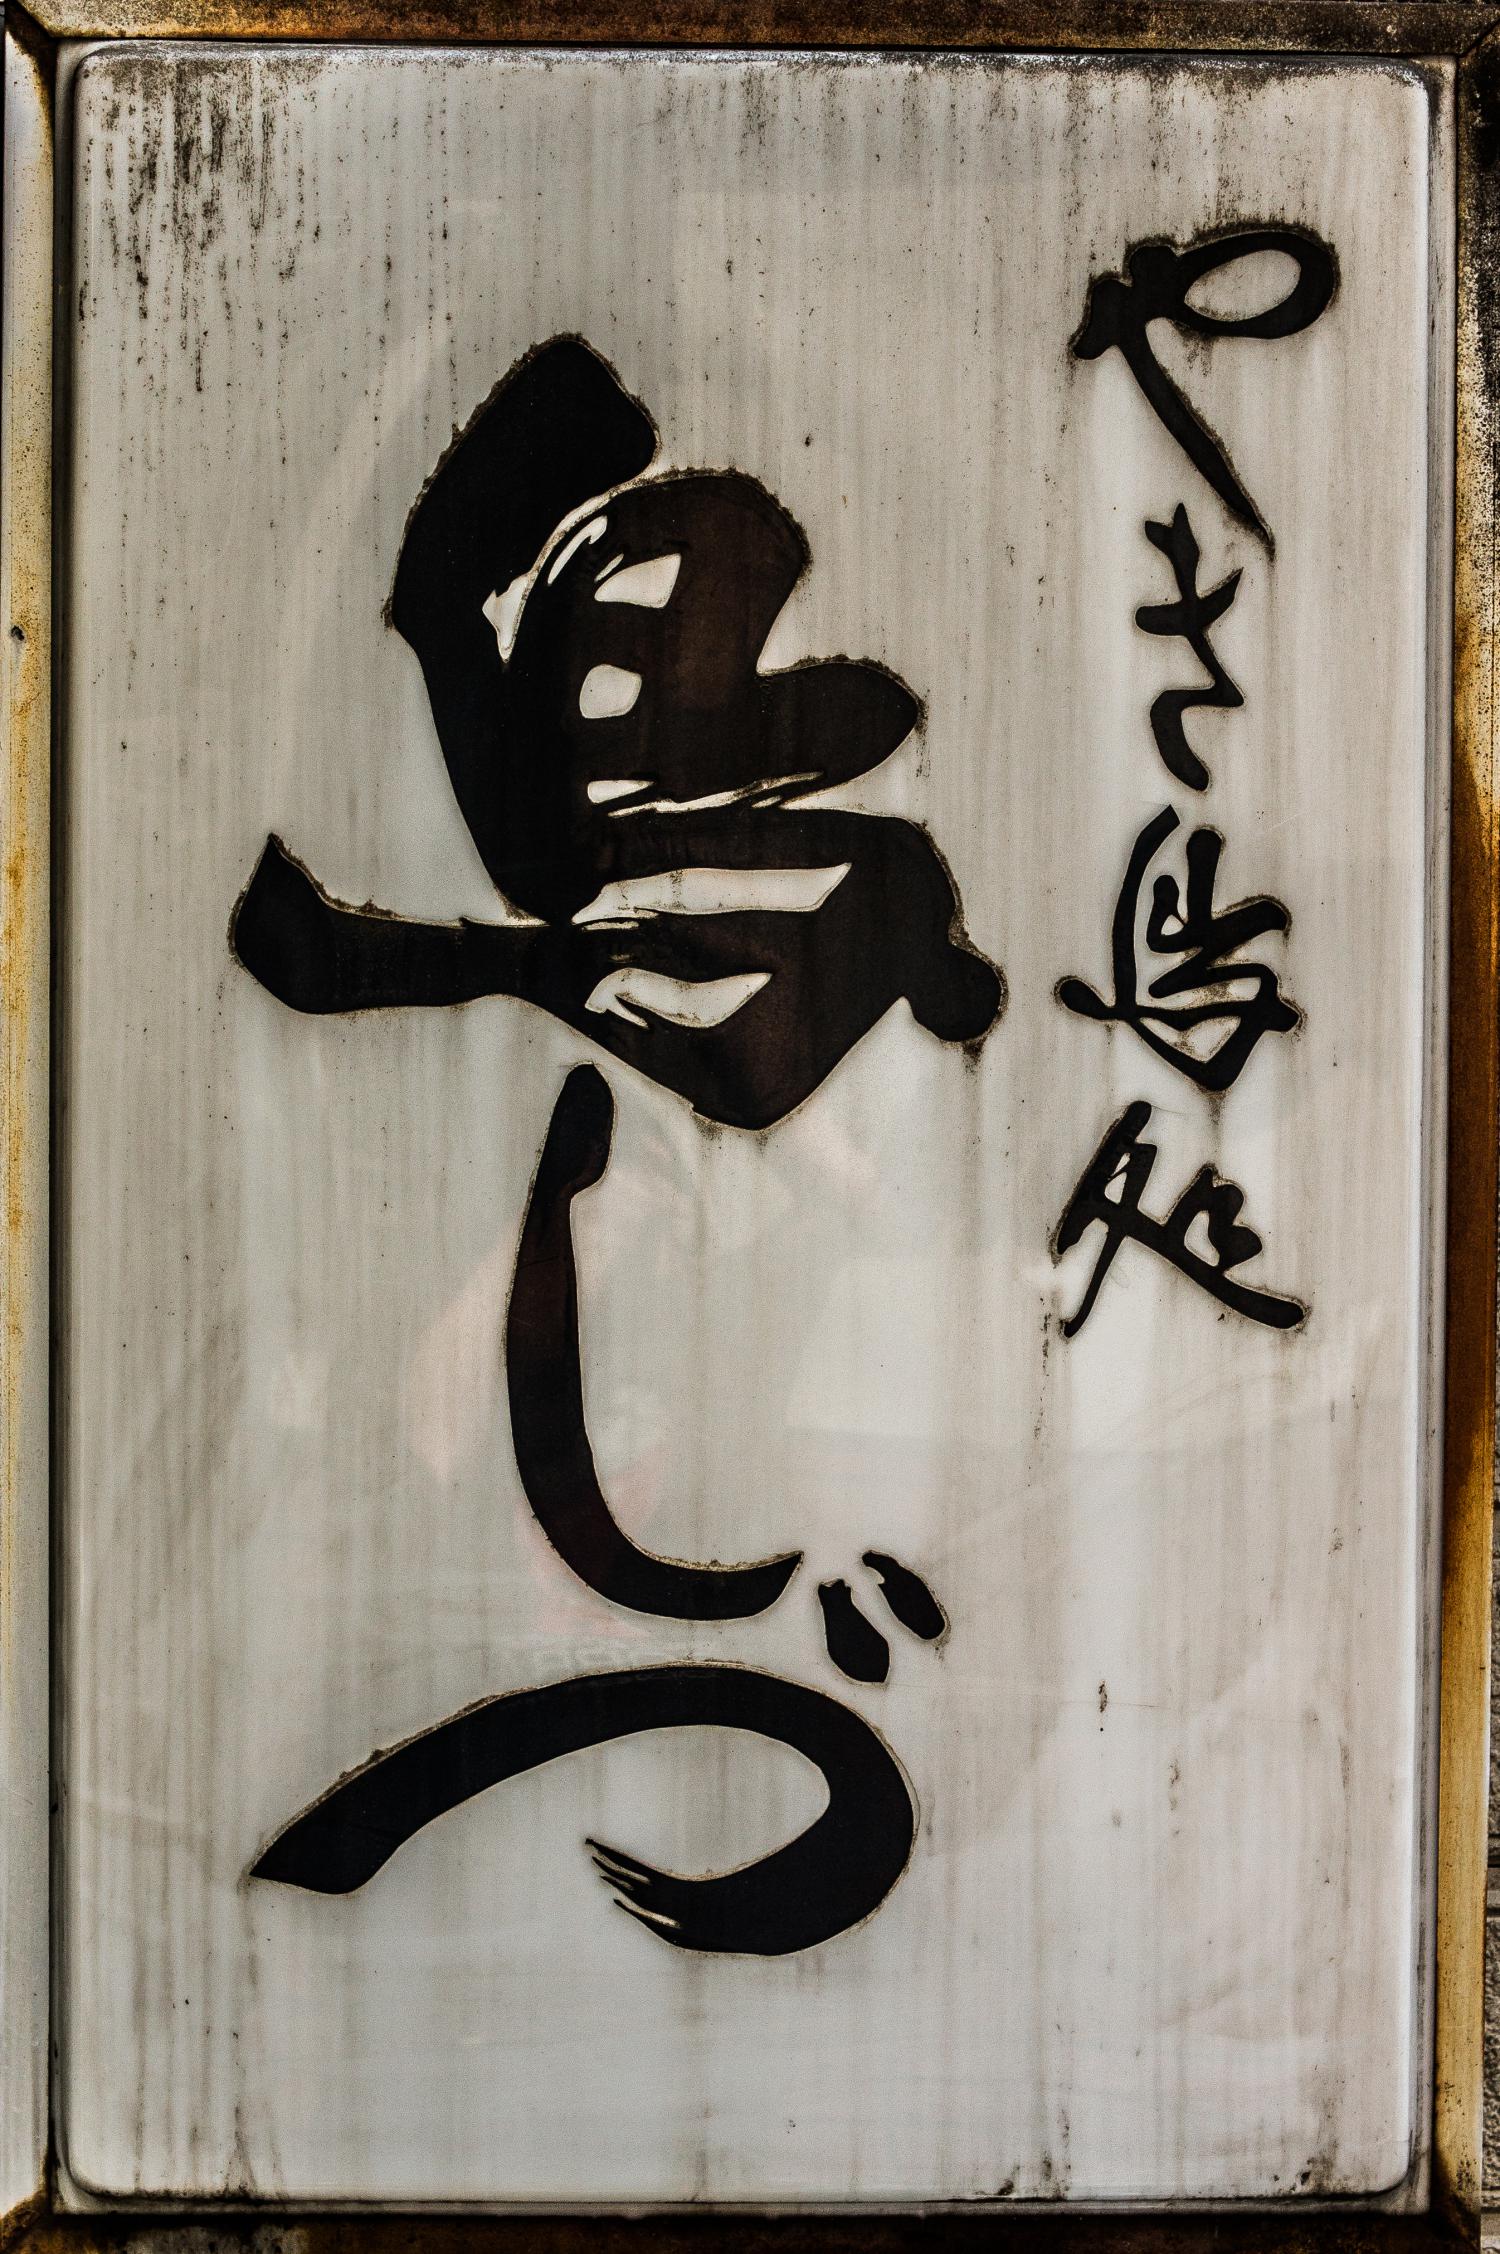 やき鳥処
鳥しづ